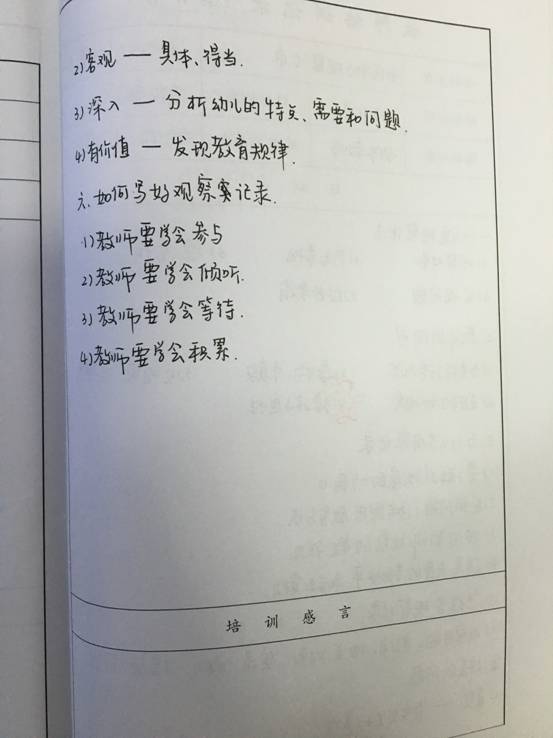 2)客观 — 具体、得当.
3)深入 — 分析幼儿的特点、需要和问题.
4)有价值 — 发现教育规律.
六.如何写好观察实记录.
1)教师要学会参与
2)教师要学会倾听.
3)教师要学会等待.
4)教师要学会积累.
培训感言